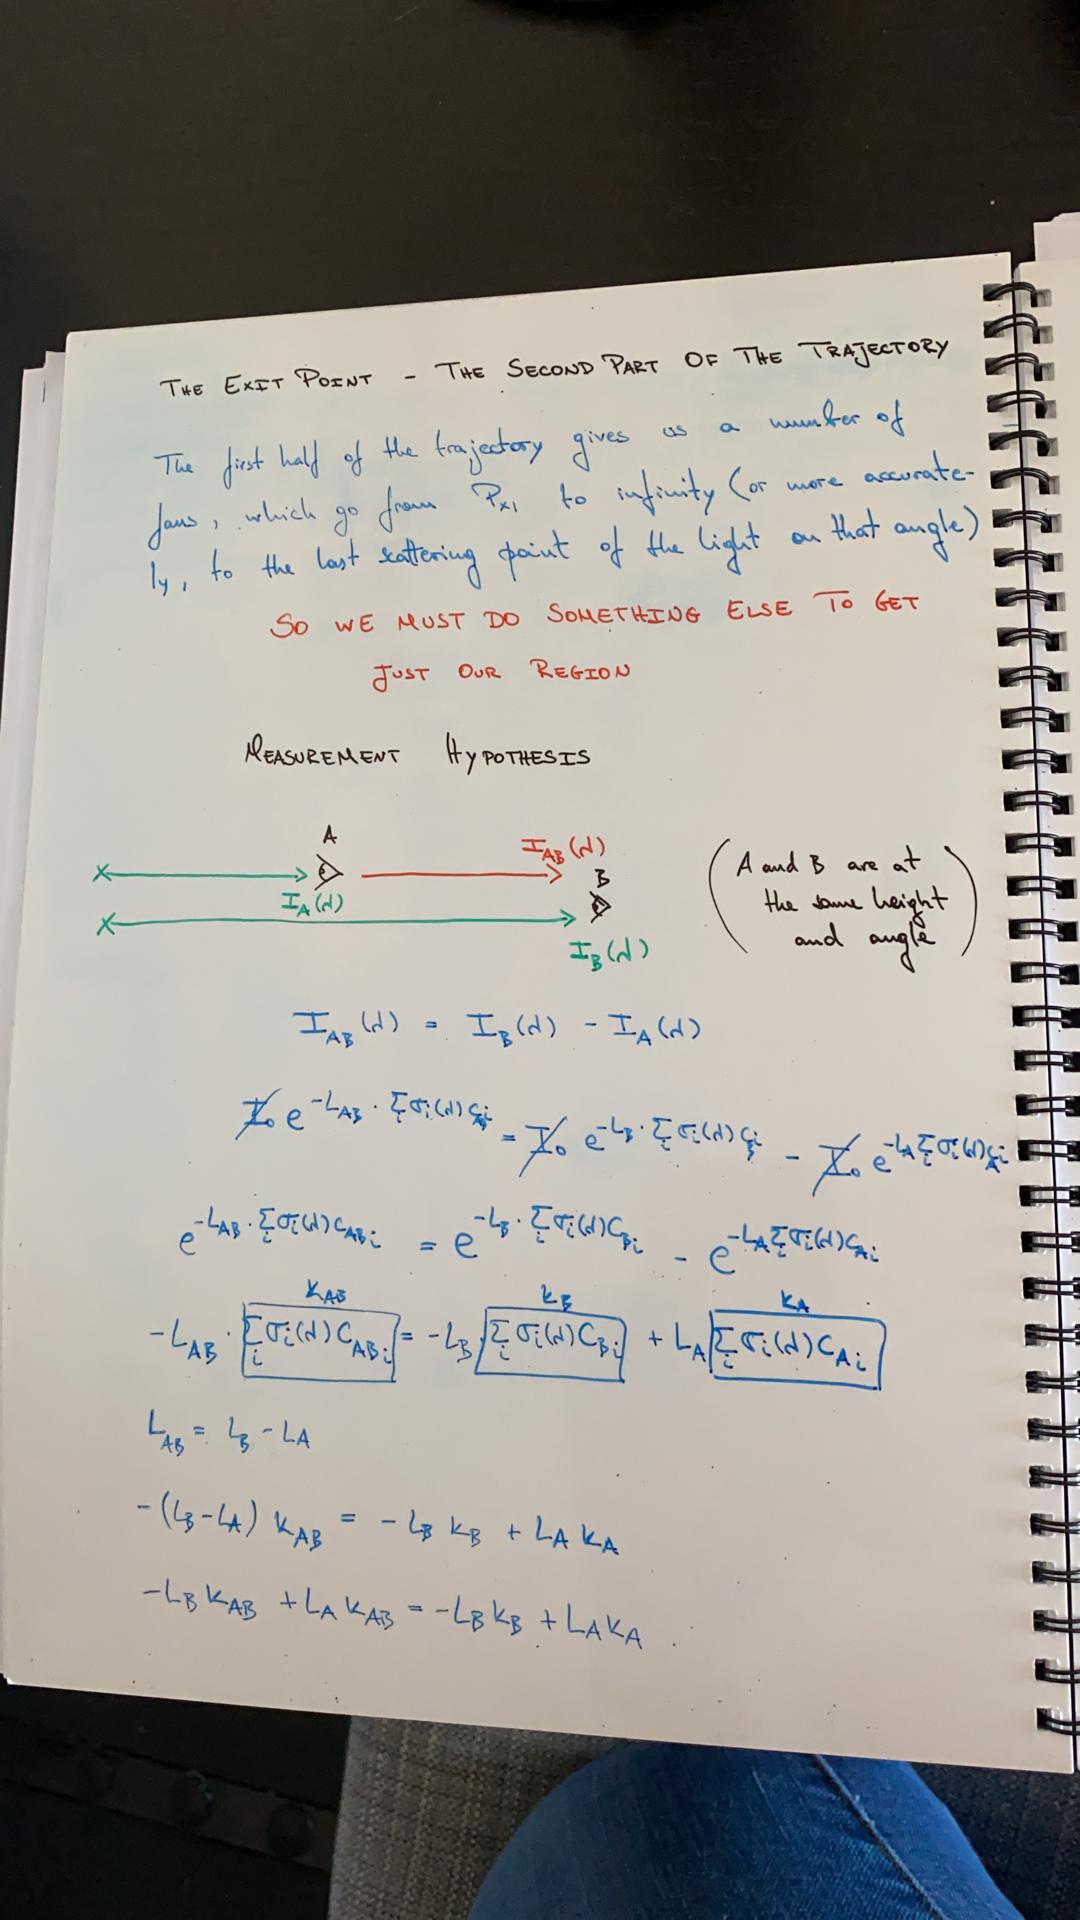 THE EXIT POINT - THE SECOND PART OF THE TRAJECTORY
The first half of the trajectory gives us a number of
fans, which go from Pₓ₁ to infinity (or more accurate-
ly, to the last scattering point of the light on that angle)
SO WE MUST DO SOMETHING ELSE TO GET
JUST OUR REGION
MEASUREMENT HYPOTHESIS
A
I_AB(λ)
B
I_A(λ)
I_B(λ)
(A and B are at
the same height
and angle)
I_AB(λ) = I_B(λ) - I_A(λ)
I₀ e^(-L_AB · Σ_i σ_i(λ) C_AB_i) = I₀ e^(-L_B · Σ_i σ_i(λ) C_B_i) - I₀ e^(-L_A Σ_i σ_i(λ) C_A_i)
e^(-L_AB · Σ_i σ_i(λ) C_AB_i) = e^(-L_B · Σ_i σ_i(λ) C_B_i) - e^(-L_A Σ_i σ_i(λ) C_A_i)
K_AB K_B K_A
-L_AB · Σ_i σ_i(λ) C_AB_i = -L_B · Σ_i σ_i(λ) C_B_i + L_A Σ_i σ_i(λ) C_A_i
L_AB = L_B - L_A
-(L_B - L_A) K_AB = -L_B K_B + L_A K_A
-L_B K_AB + L_A K_AB = -L_B K_B + L_A K_A